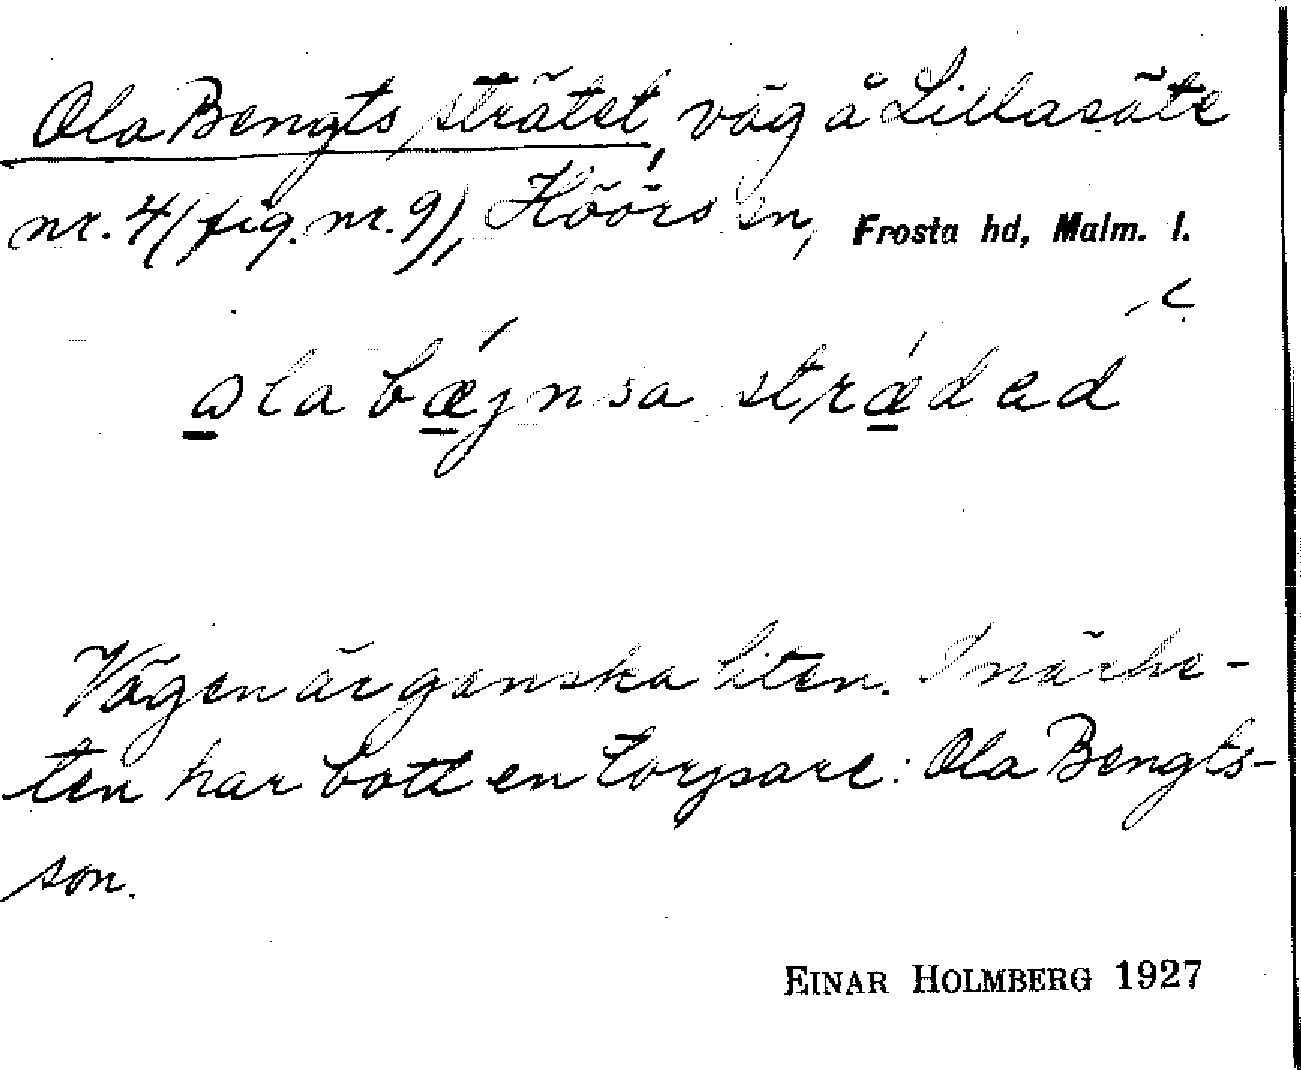 Ola Bengts strätet, väg å Lillasäte
nr. 4 (fig. nr. 9), Höörs sn, Frosta hd, Malm. l.
ola bǽŋnsa strǽdəd
Vägen är ganska liten. I närhe-
ten har bott en torpare: Ola Bengts-
son.
EINAR HOLMBERG 1927